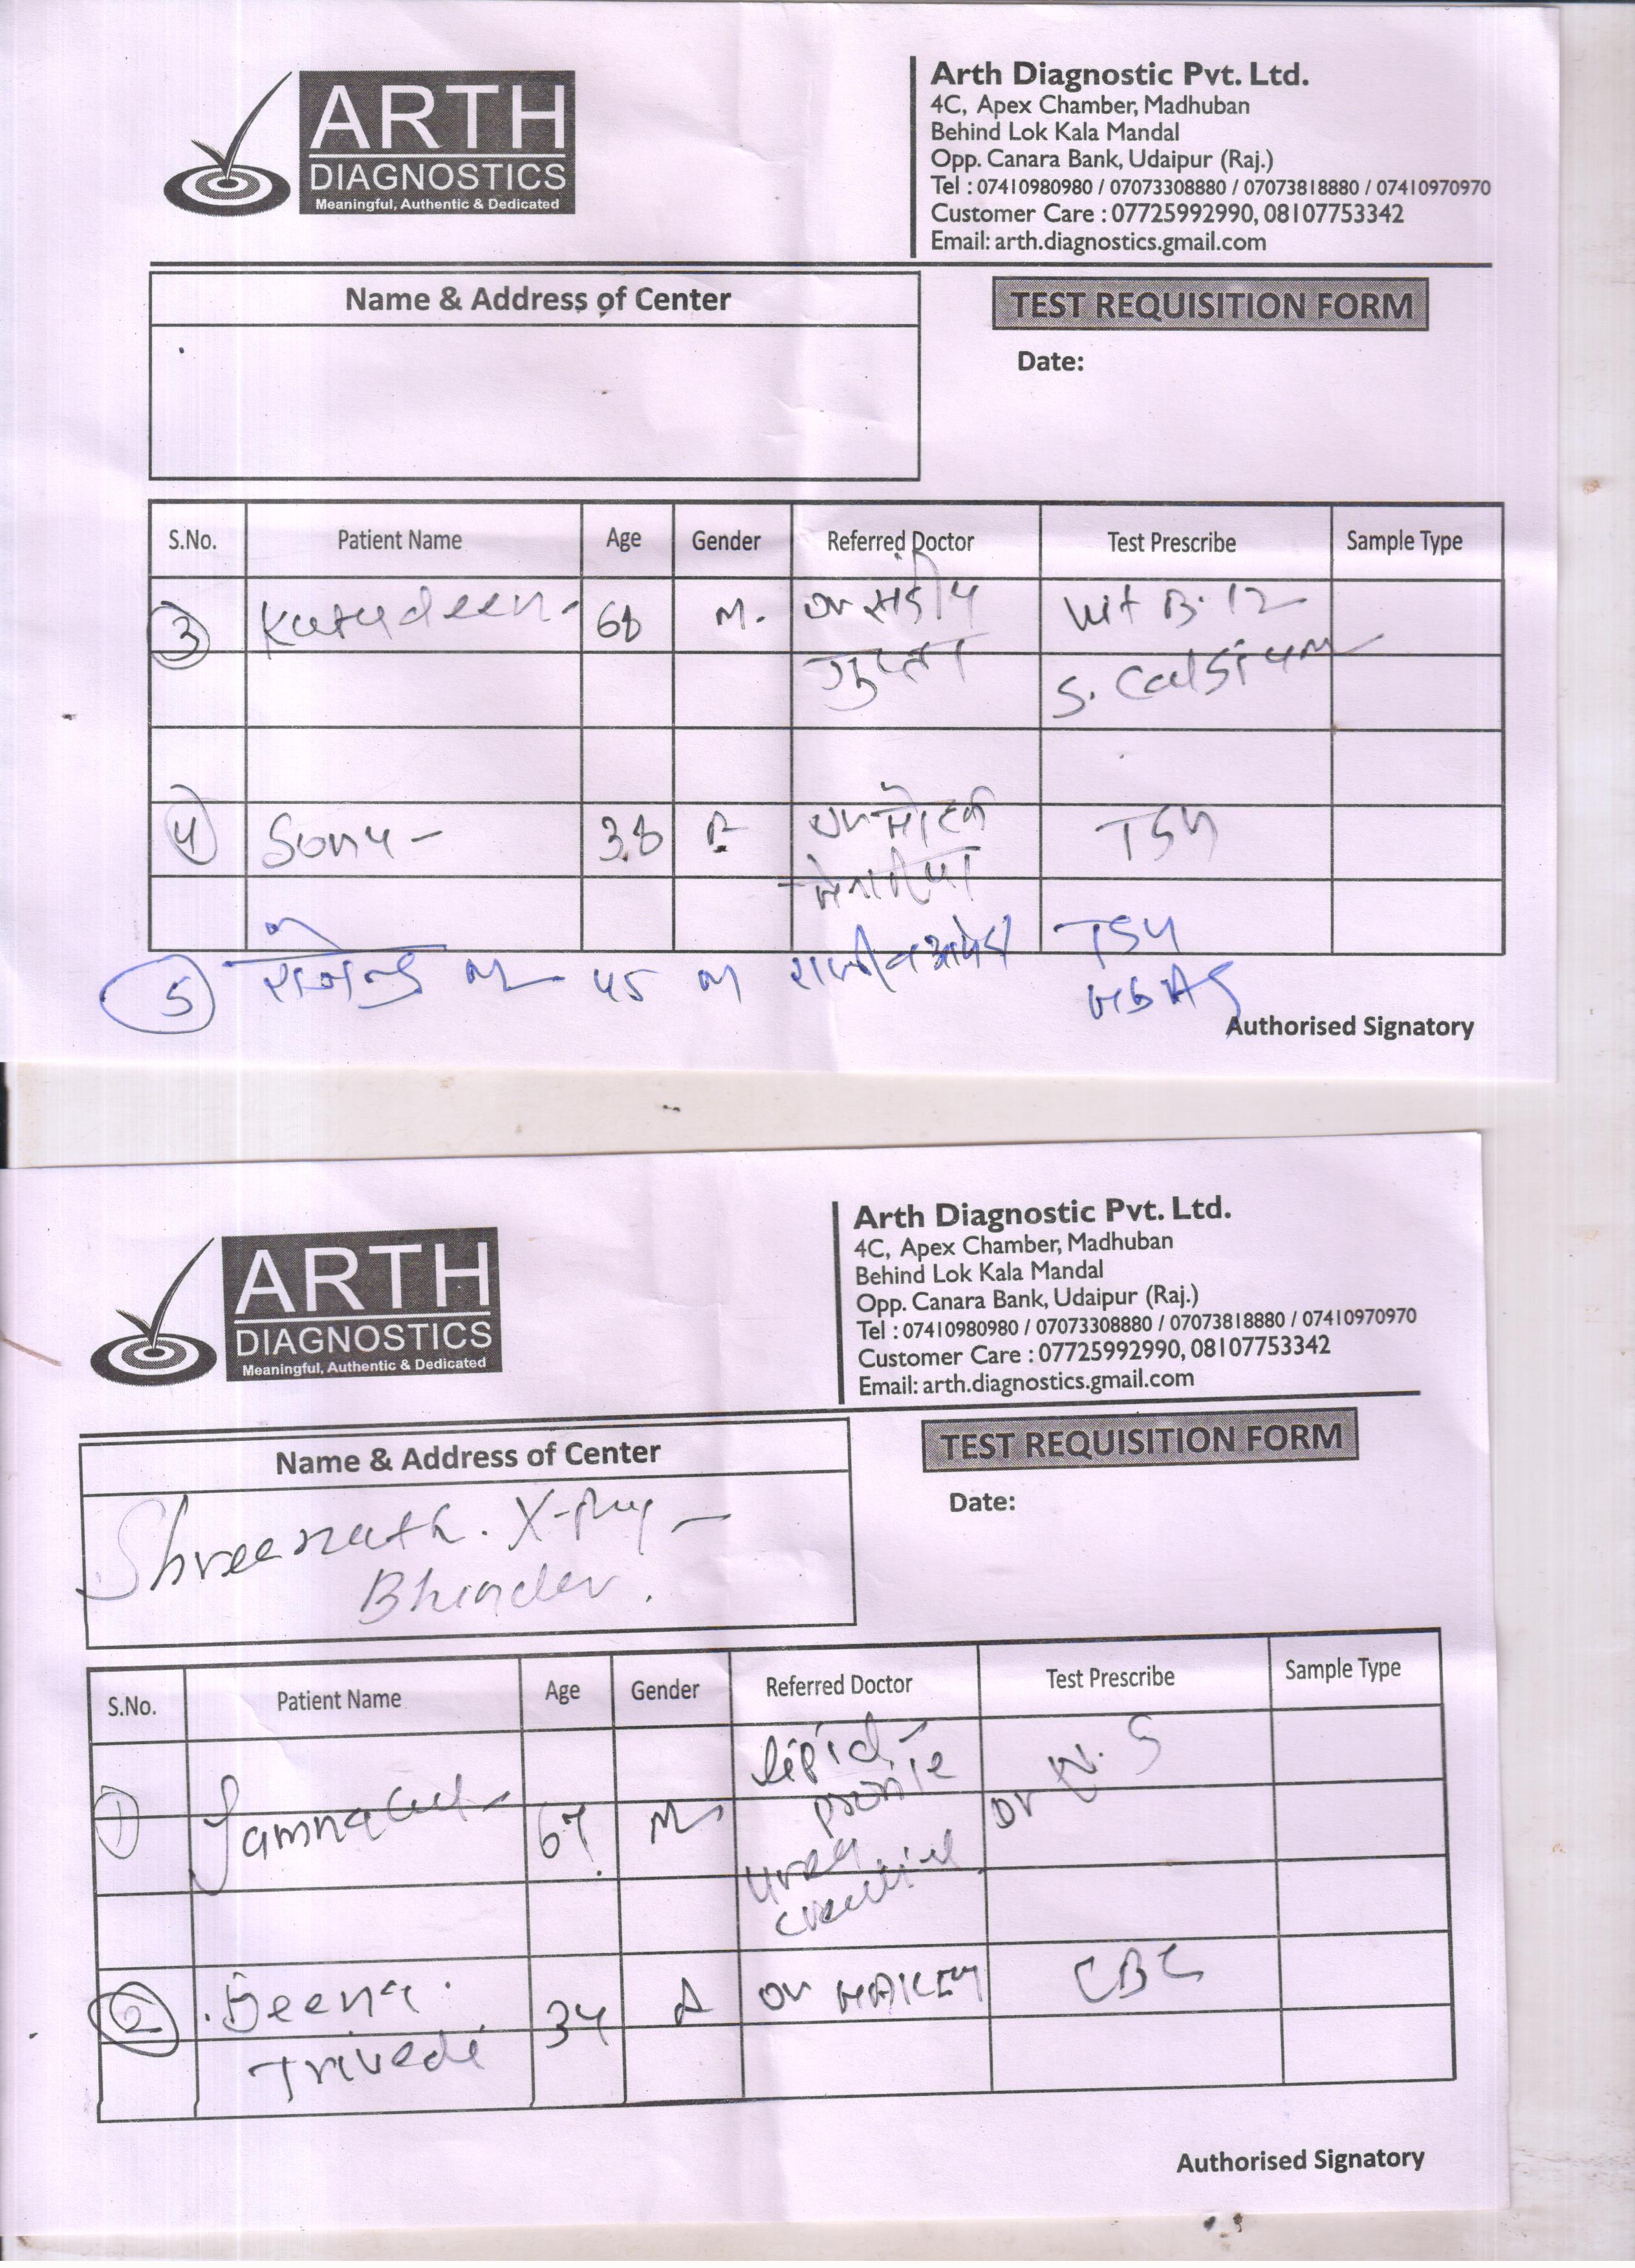 ARTH
DIAGNOSTICS
Meaningful, Authentic & Dedicated
Arth Diagnostic Pvt. Ltd.
4C, Apex Chamber, Madhuban
Behind Lok Kala Mandal
Opp. Canara Bank, Udaipur (Raj.)
Tel : 07410980980 / 07073308880 / 07073818880 / 07410970970
Customer Care : 07725992990, 08107753342
Email: arth.diagnostics.gmail.com
Name & Address of Center
TEST REQUISITION FORM
Date:
S.No. Patient Name Age Gender Referred Doctor Test Prescribe Sample Type
3 68 M. Dr Vit B.12
गुप्ता S. Calsium
4 Sonu - 38 F TSH
TSH
5 45 M
Authorised Signatory
ARTH
DIAGNOSTICS
Meaningful, Authentic & Dedicated
Arth Diagnostic Pvt. Ltd.
4C, Apex Chamber, Madhuban
Behind Lok Kala Mandal
Opp. Canara Bank, Udaipur (Raj.)
Tel : 07410980980 / 07073308880 / 07073818880 / 07410970970
Customer Care : 07725992990, 08107753342
Email: arth.diagnostics.gmail.com
Name & Address of Center
TEST REQUISITION FORM
Date:
Shreenath. X-Ray -
Bhinder.
S.No. Patient Name Age Gender Referred Doctor Test Prescribe Sample Type
lipid -
1 67 M Dr N.S
urea
2 Beena 34 Dr HAKIM CBC
Trivedi
Authorised Signatory